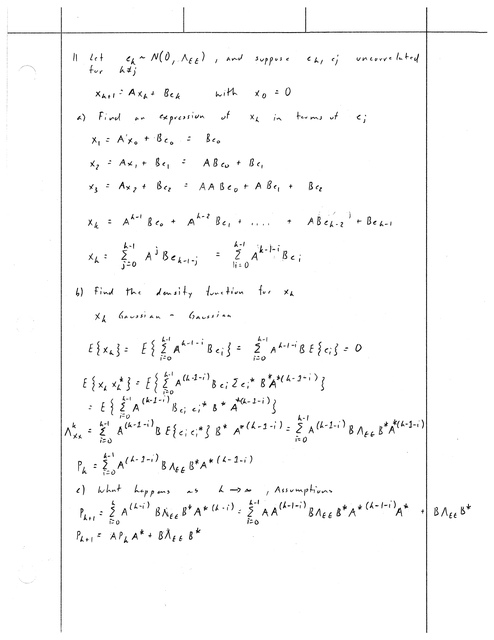 1) Let e_k ~ N(0, Λ_EE), and suppose e_k, e_j uncorrelated
for k≠j
x_{k+1} = Ax_k + Be_k with x_0 = 0
a) Find an expression of x_k in terms of e_j
x_1 = Ax_0 + Be_0 = Be_0
x_2 = Ax_1 + Be_1 = ABe_0 + Be_1
x_3 = Ax_2 + Be_2 = AABe_0 + ABe_1 + Be_2
x_k = A^{k-1}Be_0 + A^{k-2}Be_1 + .... + ABe_{k-2} + Be_{k-1}
x_k = Σ_{j=0}^{k-1} A^j Be_{k-1-j} = Σ_{i=0}^{k-1} A^{k-1-i} Be_i
b) Find the density function for x_k
x_k Gaussian - Gaussian
E{x_k} = E{Σ_{i=0}^{k-1} A^{k-1-i} Be_i} = Σ_{i=0}^{k-1} A^{k-1-i} B E{e_i} = 0
E{x_k x_k^*} = E{Σ_{i=0}^{k-1} A^{(k-1-i)} Be_i Σ e_i^* B^* A^{*(k-1-i)}}
= E{Σ_{i=0}^{k-1} A^{(k-1-i)} Be_i e_i^* B^* A^{*(k-1-i)}}
Λ_{xx}^k = Σ_{i=0}^{k-1} A^{(k-1-i)} B E{e_i e_i^*} B^* A^{*(k-1-i)} = Σ_{i=0}^{k-1} A^{(k-1-i)} B Λ_EE B^* A^{*(k-1-i)}
P_k = Σ_{i=0}^{k-1} A^{(k-1-i)} B Λ_EE B^* A^{*(k-1-i)}
c) What happens as k → ∞, Assumptions
P_{k+1} = Σ_{i=0}^{k} A^{(k-i)} B Λ_EE B^* A^{*(k-i)} = Σ_{i=0}^{k-1} A A^{(k-1-i)} B Λ_EE B^* A^{*(k-1-i)} A^* + B Λ_EE B^*
P_{k+1} = A P_k A^* + B Λ_EE B^*